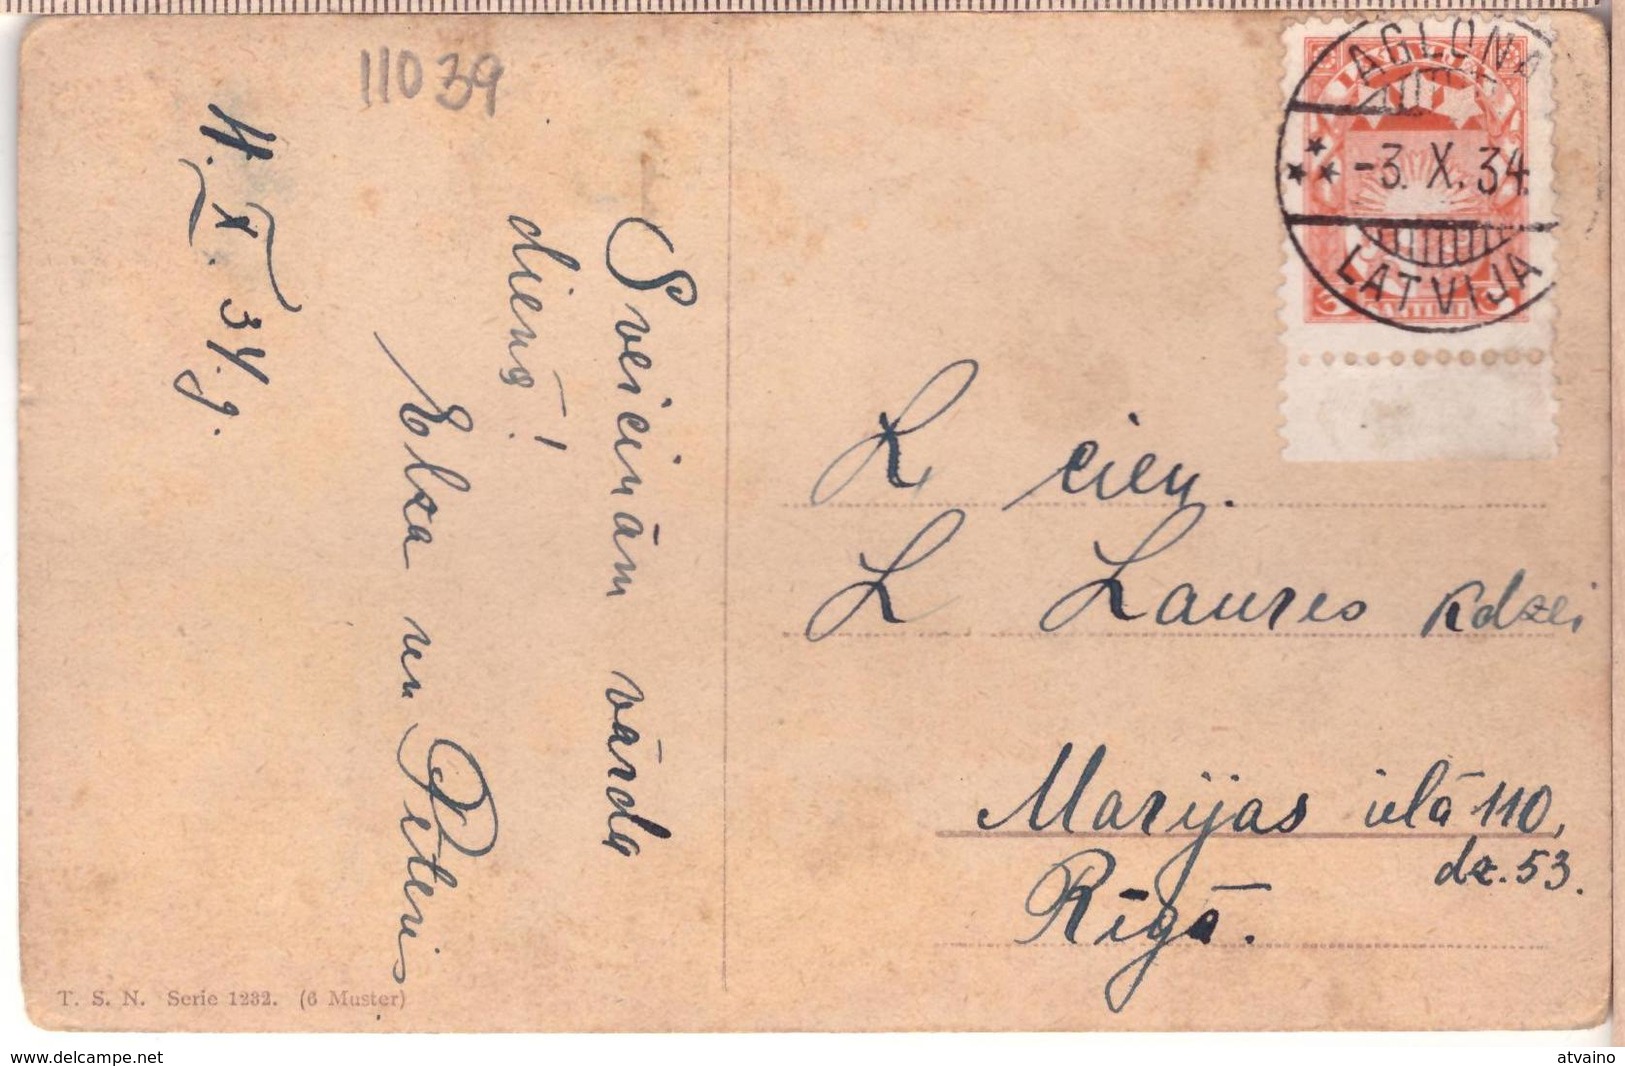 11039
4. X. 34. g.
Sveicinām vārda
dienā!
Elza un Pēteris
T. S. N. Serie 1232. (6 Muster)
AGLONA
-3. X. 34.
LATVIJA
LATVIJA
L cien.
L Laures kdzei
Marijas ielā 110,
dz. 53.
Rīgā.
www.delcampe.net
atvaino